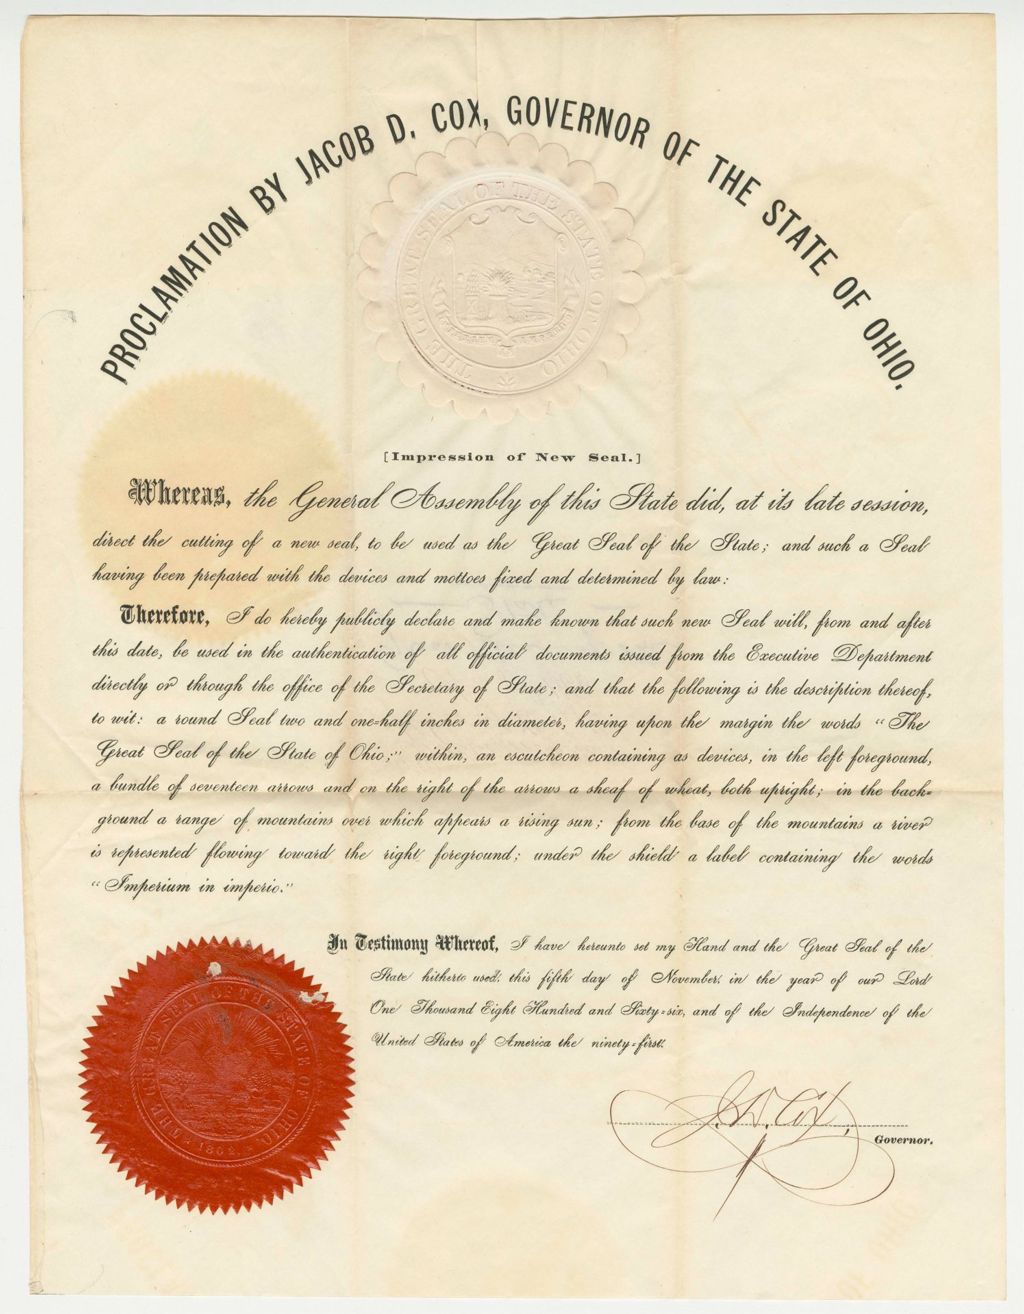 PROCLAMATION BY JACOB D. COX, GOVERNOR OF THE STATE OF OHIO.
THE GREAT SEAL OF THE STATE OF OHIO
[Impression of New Seal.]
Whereas, the General Assembly of this State did, at its late session,
direct the cutting of a new seal, to be used as the Great Seal of the State; and such a Seal
having been prepared with the devices and mottoes fixed and determined by law:
Therefore, I do hereby publicly declare and make known that such new Seal will, from and after
this date, be used in the authentication of all official documents issued from the Executive Department
directly or through the office of the Secretary of State; and that the following is the description thereof,
to wit: a round Seal two and one=half inches in diameter, having upon the margin the words "The
Great Seal of the State of Ohio;" within, an escutcheon containing as devices, in the left foreground,
a bundle of seventeen arrows and on the right of the arrows a sheaf of wheat, both upright; in the back=
ground a range of mountains over which appears a rising sun; from the base of the mountains a river
is represented flowing toward the right foreground; under the shield a label containing the words
"Imperium in imperio."
In Testimony Whereof, I have hereunto set my Hand and the Great Seal of the
State hitherto used, this fifth day of November, in the year of our Lord
One Thousand Eight Hundred and Sixty=six, and of the Independence of the
United States of America the ninety=first.
THE GREAT SEAL OF THE STATE OF OHIO
1802.
J. D. Cox,
Governor.